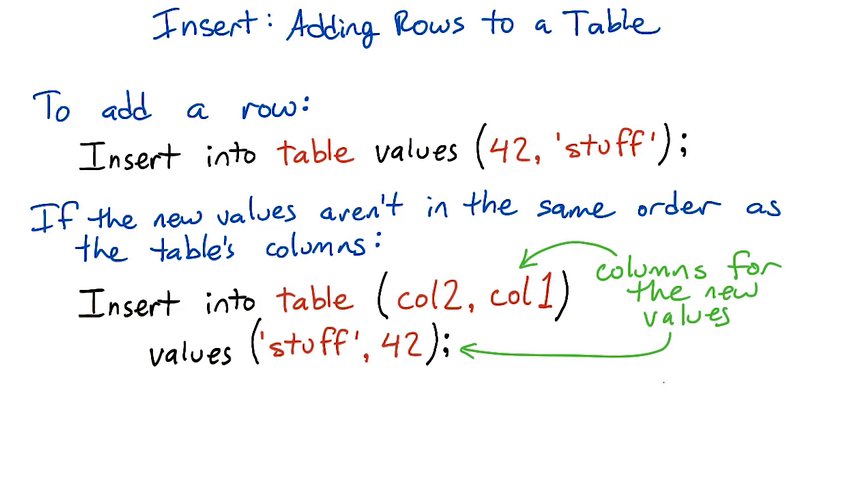 Insert: Adding Rows to a Table
To add a row:
Insert into table values (42, 'stuff');
If the new values aren't in the same order as
the table's columns:
Insert into table (col2, col1)
values ('stuff', 42);
columns for
the new
values